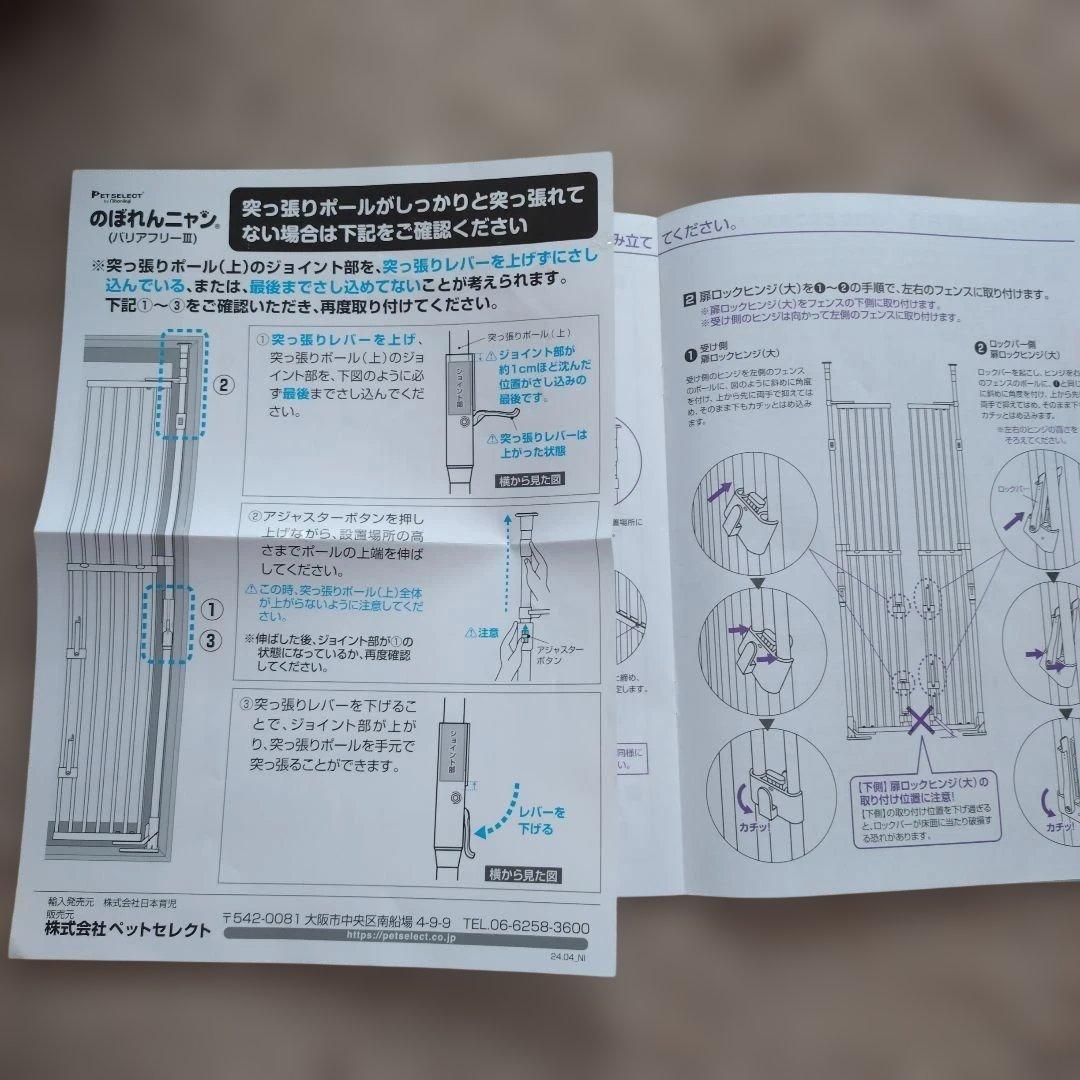 PETSELECT
by Nihonikuji
のぼれんニャン®
(バリアフリーⅢ)
突っ張りポールがしっかりと突っ張れて
ない場合は下記をご確認ください
※突っ張りポール(上)のジョイント部を、突っ張りレバーを上げずにさし
込んでいる、または、最後までさし込めてないことが考えられます。
下記①〜③をご確認いただき、再度取り付けてください。
②
①
③
①突っ張りレバーを上げ、
突っ張りポール(上)のジョ
イント部を、下図のように必
ず最後までさし込んでくだ
さい。
突っ張りポール(上)
ジョイント部
⚠ジョイント部が
約1cmほど沈んだ
位置がさし込みの
最後です。
⚠突っ張りレバーは
上がった状態
横から見た図
②アジャスターボタンを押し
上げながら、設置場所の高
さまでポールの上端を伸ば
してください。
⚠この時、突っ張りポール(上)全体
が上がらないように注意してくだ
さい。
※伸ばした後、ジョイント部が①の
状態になっているか、再度確認
してください。
⚠注意
アジャスター
ボタン
③突っ張りレバーを下げるこ
とで、ジョイント部が上が
り、突っ張りポールを手元で
突っ張ることができます。
ジョイント部
レバーを
下げる
横から見た図
輸入発売元 株式会社日本育児
販売元
株式会社ペットセレクト
〒542-0081 大阪市中央区南船場 4-9-9 TEL.06-6258-3600
https://petselect.co.jp
24.04_NI
み立ててください。
置場所に
に締め、
定します。
同様に
い。
2 扉ロックヒンジ(大)を❶〜❷の手順で、左右のフェンスに取り付けます。
※扉ロックヒンジ(大)をフェンスの下側に取り付けます。
※受け側のヒンジは向かって左側のフェンスに取り付けます。
❶ 受け側
扉ロックヒンジ(大)
受け側のヒンジを左側のフェンス
のポールに、図のように斜めに角度
を付け、上から先に両手で抑えては
め、そのまま下もカチッとはめ込み
ます。
❷ ロックバー側
扉ロックヒンジ(大)
ロックバーを起こし、ヒンジを右
のフェンスのポールに、❶と同じ
に斜めに角度を付け、上から先
両手で抑えてはめ、そのまま下
カチッとはめ込みます。
※左右のヒンジの高さを
そろえてください。
ロックバー
カチッ!
【下側】扉ロックヒンジ(大)の
取り付け位置に注意!
【下側】の取り付け位置を下げ過ぎる
と、ロックバーが床面に当たり破損す
る恐れがあります。
カチッ!